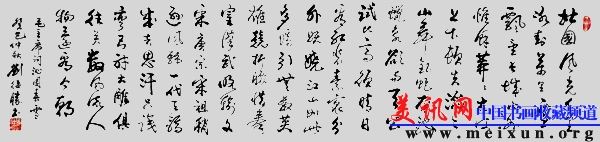 北国风光千里
冰封万里雪
飘望长城内外
惟余莽莽大河
上下顿失滔滔
山舞银蛇原驰
蜡象欲与天公
试比高须晴日
看红装素裹分
外妖娆江山如此
多娇引无数英
雄竞折腰惜秦
皇汉武略输文
采唐宗宋祖稍
逊风骚一代天骄
成吉思汗只识
弯弓射大雕俱
往矣数风流人
物还看今朝
毛主席词沁园春雪
癸巳仲秋刘
美讯网 中国书画收藏频道
www.meixun.org